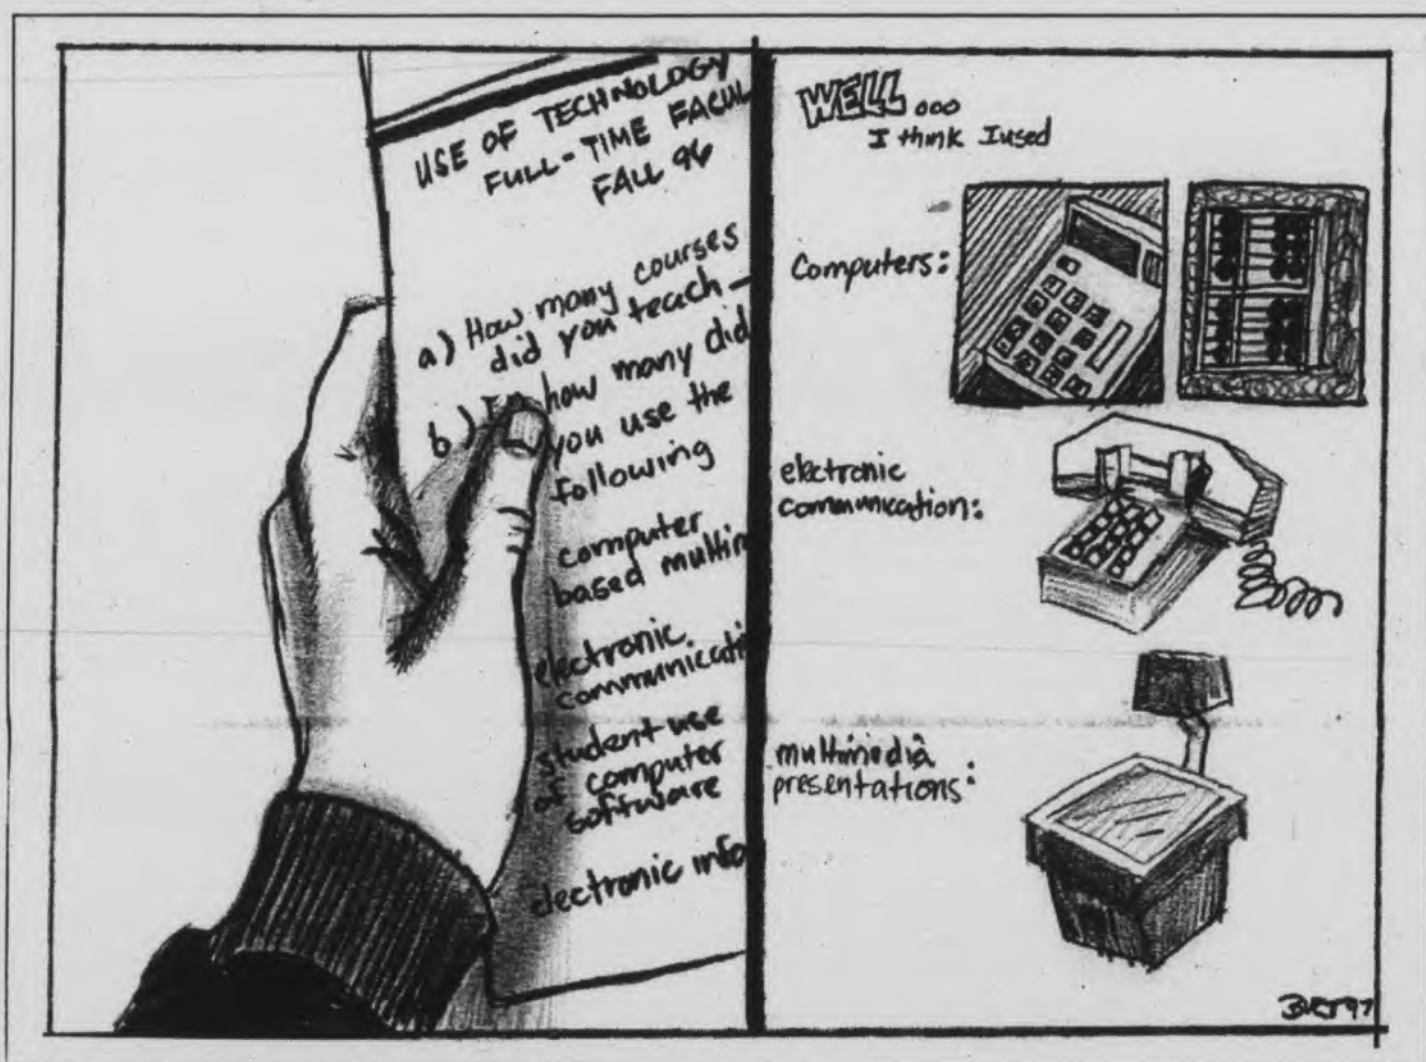 USE OF TECHNOLOGY
FULL-TIME FACUL
FALL 96
a) How many courses
did you teach —
b) In how many did
you use the
following
computer
based multim
electronic
communicati
student use
of computer
software
electronic info
WELL...
I think I used
Computers:
electronic
communication:
multimedia
presentations: